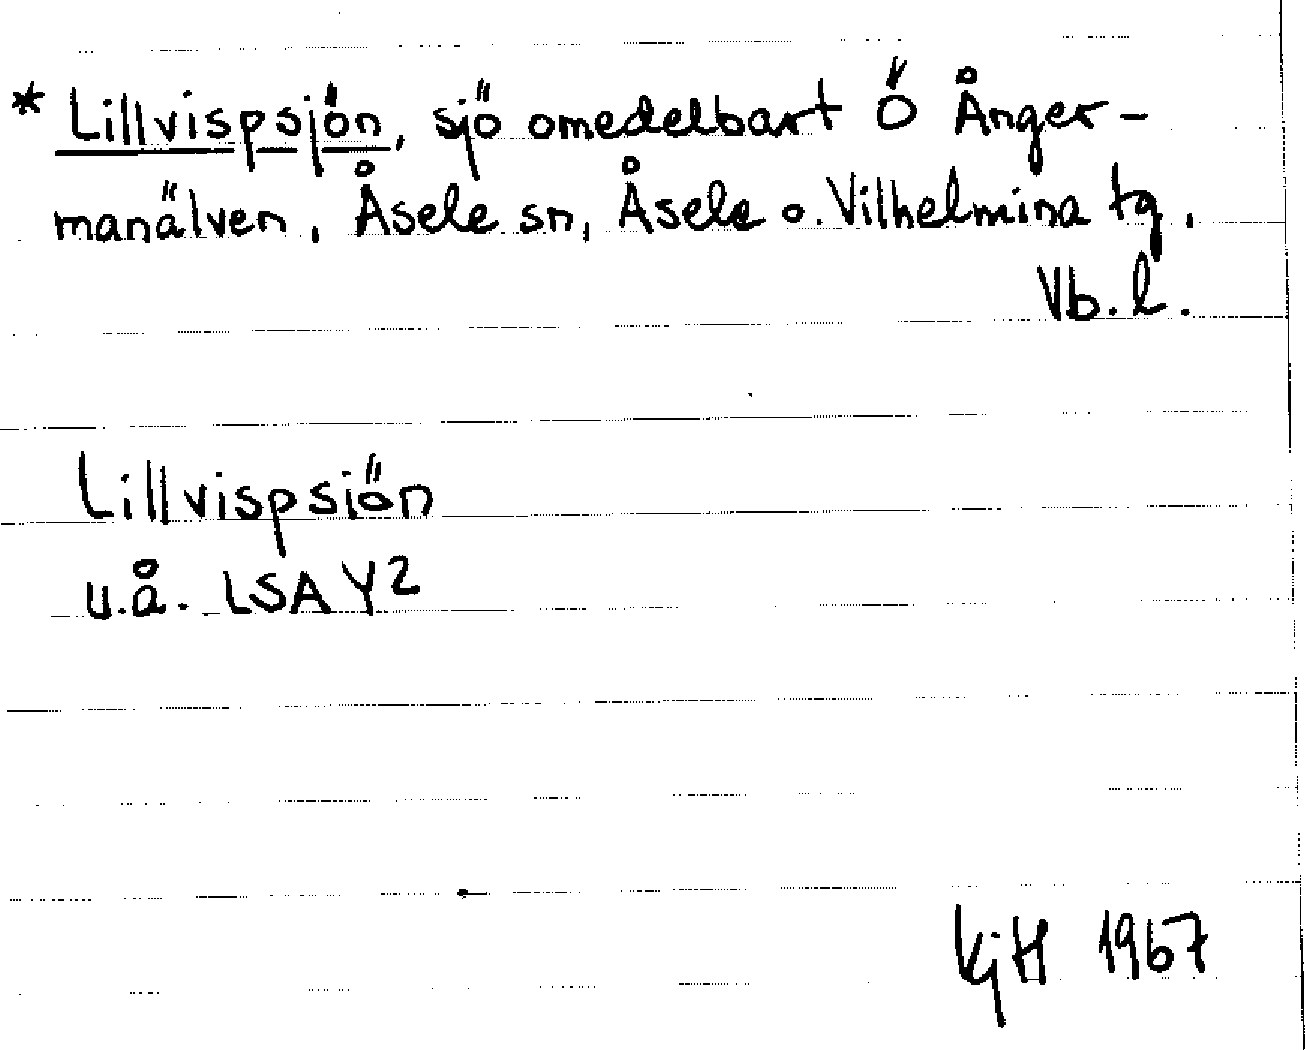 * Lillvispsjön, sjö omedelbart Ö Ånger-
manälven, Åsele sn, Åsele o. Vilhelmina tg,
Vb. l.
Lillvispsiön
u.å. LSA Y2
KjH 1967